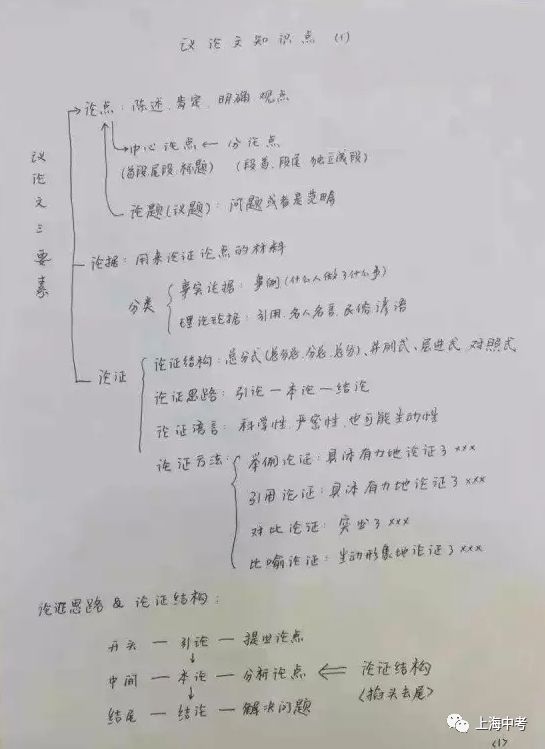 议论文知识点 (1)
议论文三要素
论点：陈述、肯定、明确 观点
中心论点 ← 分论点
(首段、尾段、标题) (段首、段尾 独立成段)
论题(议题)：问题或者是范畴
论据：用来论证论点的材料
分类
事实论据：事例(什么人做了什么事)
理论论据：引用、名人名言、民俗谚语
论证
论证结构：总分式(总分总、分总、总分)、并列式、层进式 对照式
论证思路：引论—本论—结论
论证语言：科学性、严密性、也可能生动性
论证方法：
举例论证：具体有力地论证了xxx
引用论证：具体有力地论证了xxx
对比论证：突出了xxx
比喻论证：生动形象地论证了xxx
论证思路 & 论证结构：
开头 — 引论 — 提出论点
↓
中间 — 本论 — 分析论点 ⇐ 论证结构
↓ (掐头去尾)
结尾 — 结论 — 解决问题
上海中考
(1)